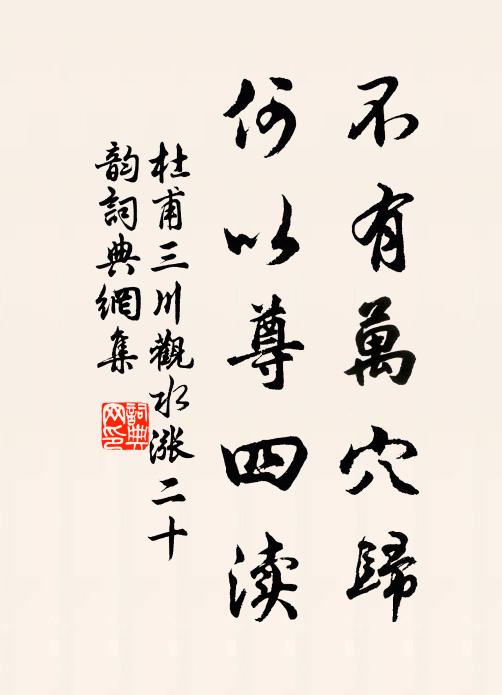 不有萬穴歸
何以尊四渎
杜甫三川觀水漲二十
韵詞典網集
詞典网印